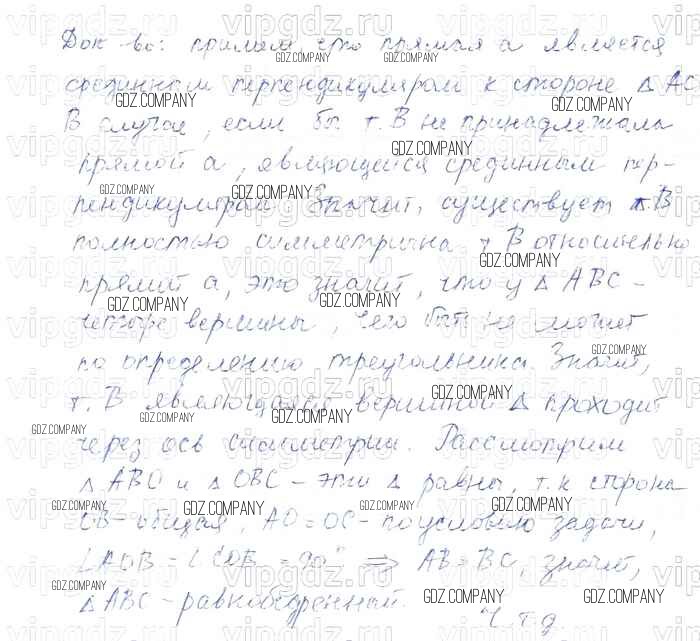 Док-во: примем что прямая а является
срединным перпендикуляром к стороне Δ AC
В случае, если бы т. B не принадлежала
прямой а, являющейся срединным пер-
пендикуляром. Значит, существует т. B
полностью симметрична т. B относительно
прямой а, это значит, что у Δ ABC -
четыре вершины, чего быть не может
по определению треугольника. Значит,
т. B являющаяся вершиной Δ проходит
через ось симметрии. Рассмотрим
Δ ABO и Δ OBC - эти Δ равны, т.к сторона
OB - общая, AO = OC - по условию задачи,
∠AOB = ∠COB = 90° ⇒ AB = BC, значит,
Δ ABC - равнобедренный.
Ч.т.д.